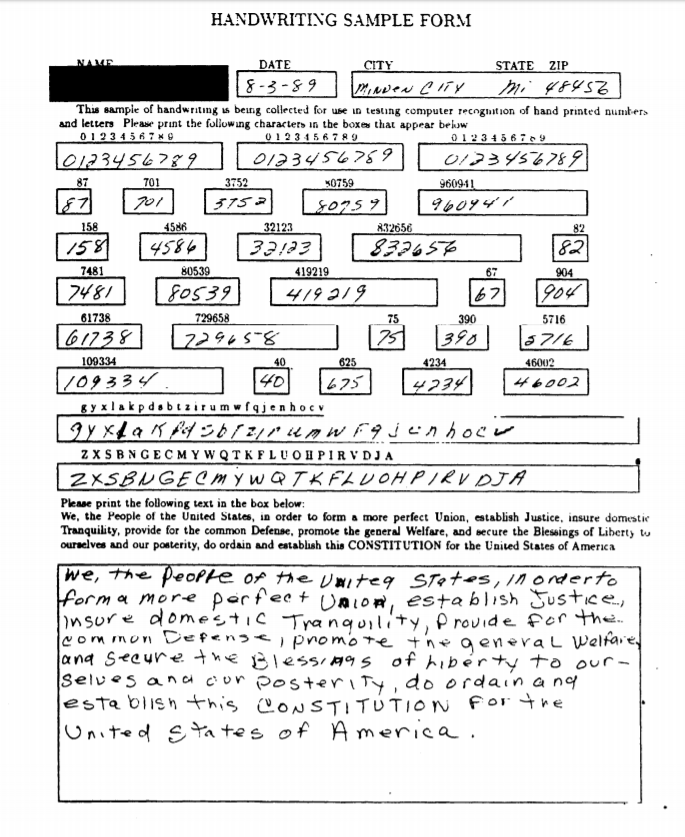 HANDWRITING SAMPLE FORM
NAME DATE CITY STATE ZIP
8-3-89 MINDEN CITY Mi 48456
This sample of handwriting is being collected for use in testing computer recognition of hand printed numbers
and letters Please print the following characters in the boxes that appear below
0 1 2 3 4 5 6 7 8 9 0 1 2 3 4 5 6 7 8 9 0 1 2 3 4 5 6 7 8 9
0123456789 0123456789 0123456789
87 701 3752 80759 960941
87 701 3752 80759 960941
158 4586 32123 832656 82
158 4586 32123 832656 82
7481 80539 419219 67 904
7481 80539 419219 67 904
61738 729658 75 390 5716
61738 729658 75 390 5716
109334 40 625 4234 46002
109334 40 675 4234 46002
g y x l a k p d s b t z i r u m w f q j e n h o c v
g y x l a k p d s b t z i r u m w f q j e n h o c v
Z X S B N G E C M Y W Q T K F L U O H P I R V D J A
Z X S B N G E C M Y W Q T K F L U O H P I R V D J A
Please print the following text in the box below:
We, the People of the United States, in order to form a more perfect Union, establish Justice, insure domestic
Tranquility, provide for the common Defense, promote the general Welfare, and secure the Blessings of Liberty to
ourselves and our posterity, do ordain and establish this CONSTITUTION for the United States of America
We, the People of the United States, in order to
form a more perfect Union, establish Justice,
insure domestic Tranquility, Provide for the
common Defense, promote the general Welfare,
and secure the Blessings of Liberty to our-
selves and our posterity, do ordain and
establish this CONSTITUTION for the
United States of America.